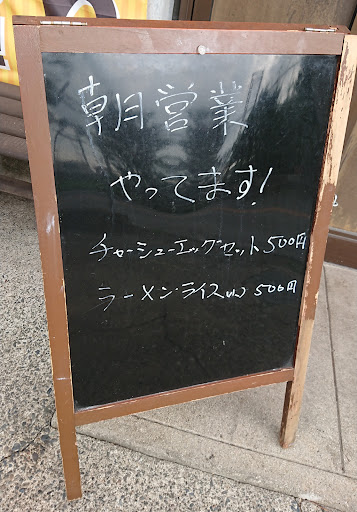 朝営業
やってます!
チャーシューエッグセット500円
ラーメン・ライス(小)500円